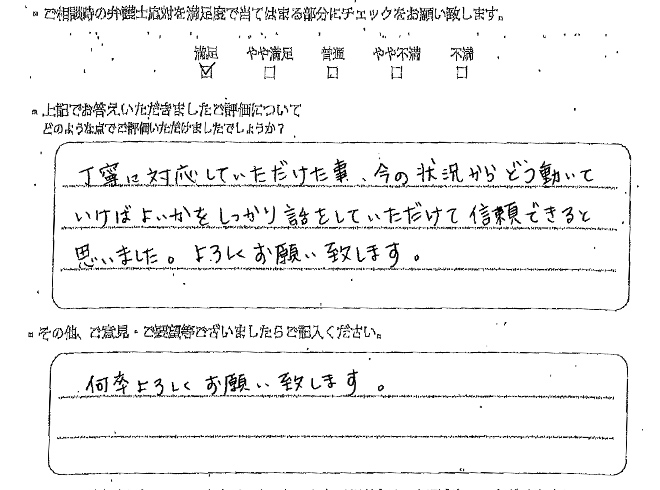 ■ ご相談時の弁護士応対を満足度で当てはまる部分にチェックをお願い致します。
満足 やや満足 普通 やや不満 不満
☑ □ □ □ □
■ 上記でお答えいただきましたご評価について
どのような点でご評価いただけましたでしょうか？
丁寧に対応していただけた事、今の状況からどう動いて
いけばよいかをしっかり話をしていただけて信頼できると
思いました。よろしくお願い致します。
■ その他、ご意見・ご要望等ございましたらご記入ください。
何卒よろしくお願い致します。